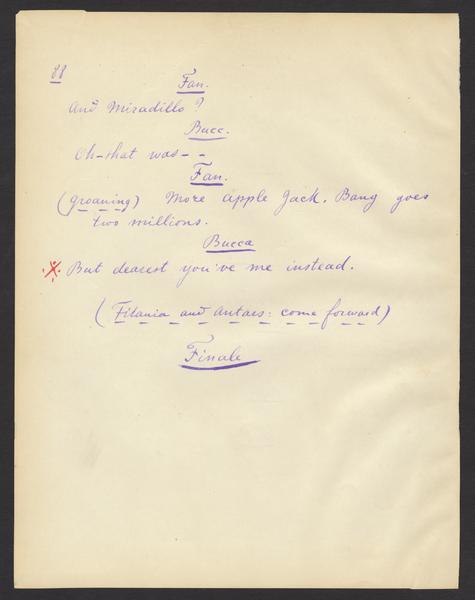 88
Fan.
And Miradillo?
Bucc.
Oh-that was- -
Fan.
(groaning) More Apple Jack. Bang goes
two millions.
Bucca
But dearest you've me instead.
(Titania and Antars: come forward)
Finale